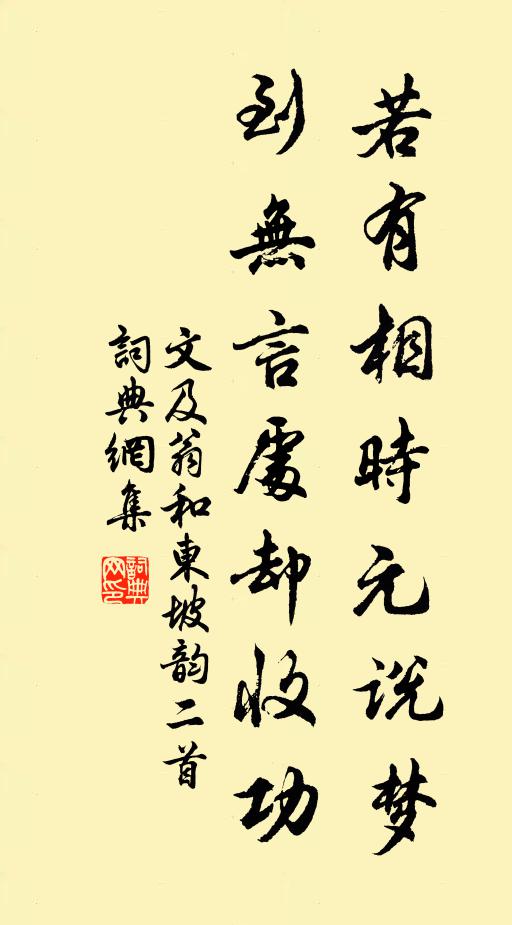 若有相時元说梦
到無言處却收功
文及翁和東坡韵二首
詞典網集
詞典网印